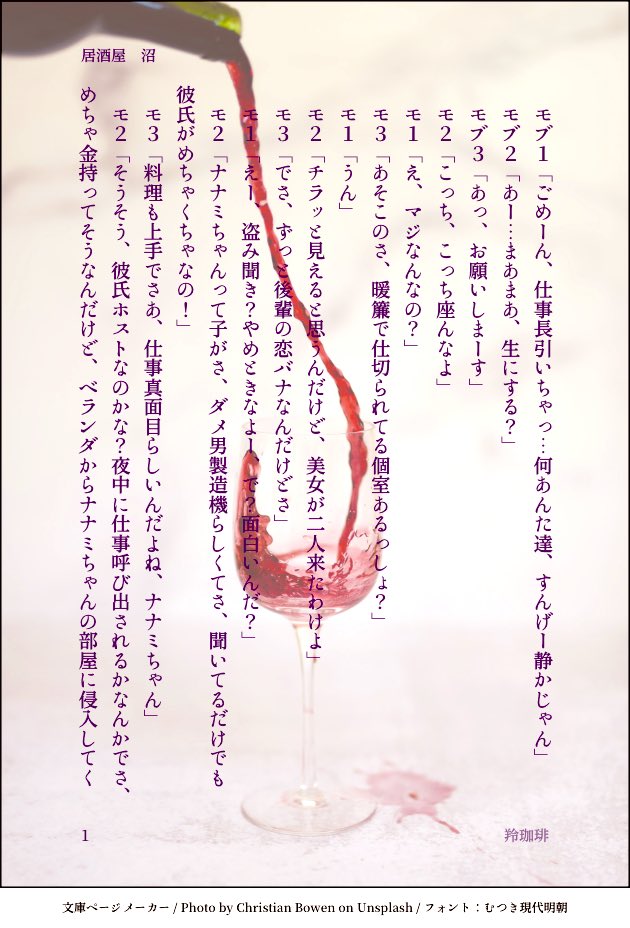 居酒屋　沼
モブ1「ごめーん、仕事長引いちゃっ…何あんた達、すんげー静かじゃん」
モブ2「あー…まあまあ、生にする？」
モブ3「あっ、お願いしまーす」
モ2「こっち、こっち座んなよ」
モ1「え、マジなんなの？」
モ3「あそこのさ、暖簾で仕切られてる個室あるっしょ？」
モ1「うん」
モ2「チラッと見えると思うんだけど、美女が二人来たわけよ」
モ3「でさ、ずっと後輩の恋バナなんだけどさ」
モ1「えー、盗み聞き？やめときなよー、で？面白いんだ？」
モ2「ナナミちゃんって子がさ、ダメ男製造機らしくてさ、聞いてるだけでも
彼氏がめちゃくちゃなの！」
モ3「料理も上手でさあ、仕事真面目らしいんだよね、ナナミちゃん」
モ2「そうそう、彼氏ホストなのかな？夜中に仕事呼び出されるかなんかでさ、
めちゃ金持ってそうなんだけど、ベランダからナナミちゃんの部屋に侵入してく
1
羚珈琲
文庫ページメーカー / Photo by Christian Bowen on Unsplash / フォント：むつき現代明朝